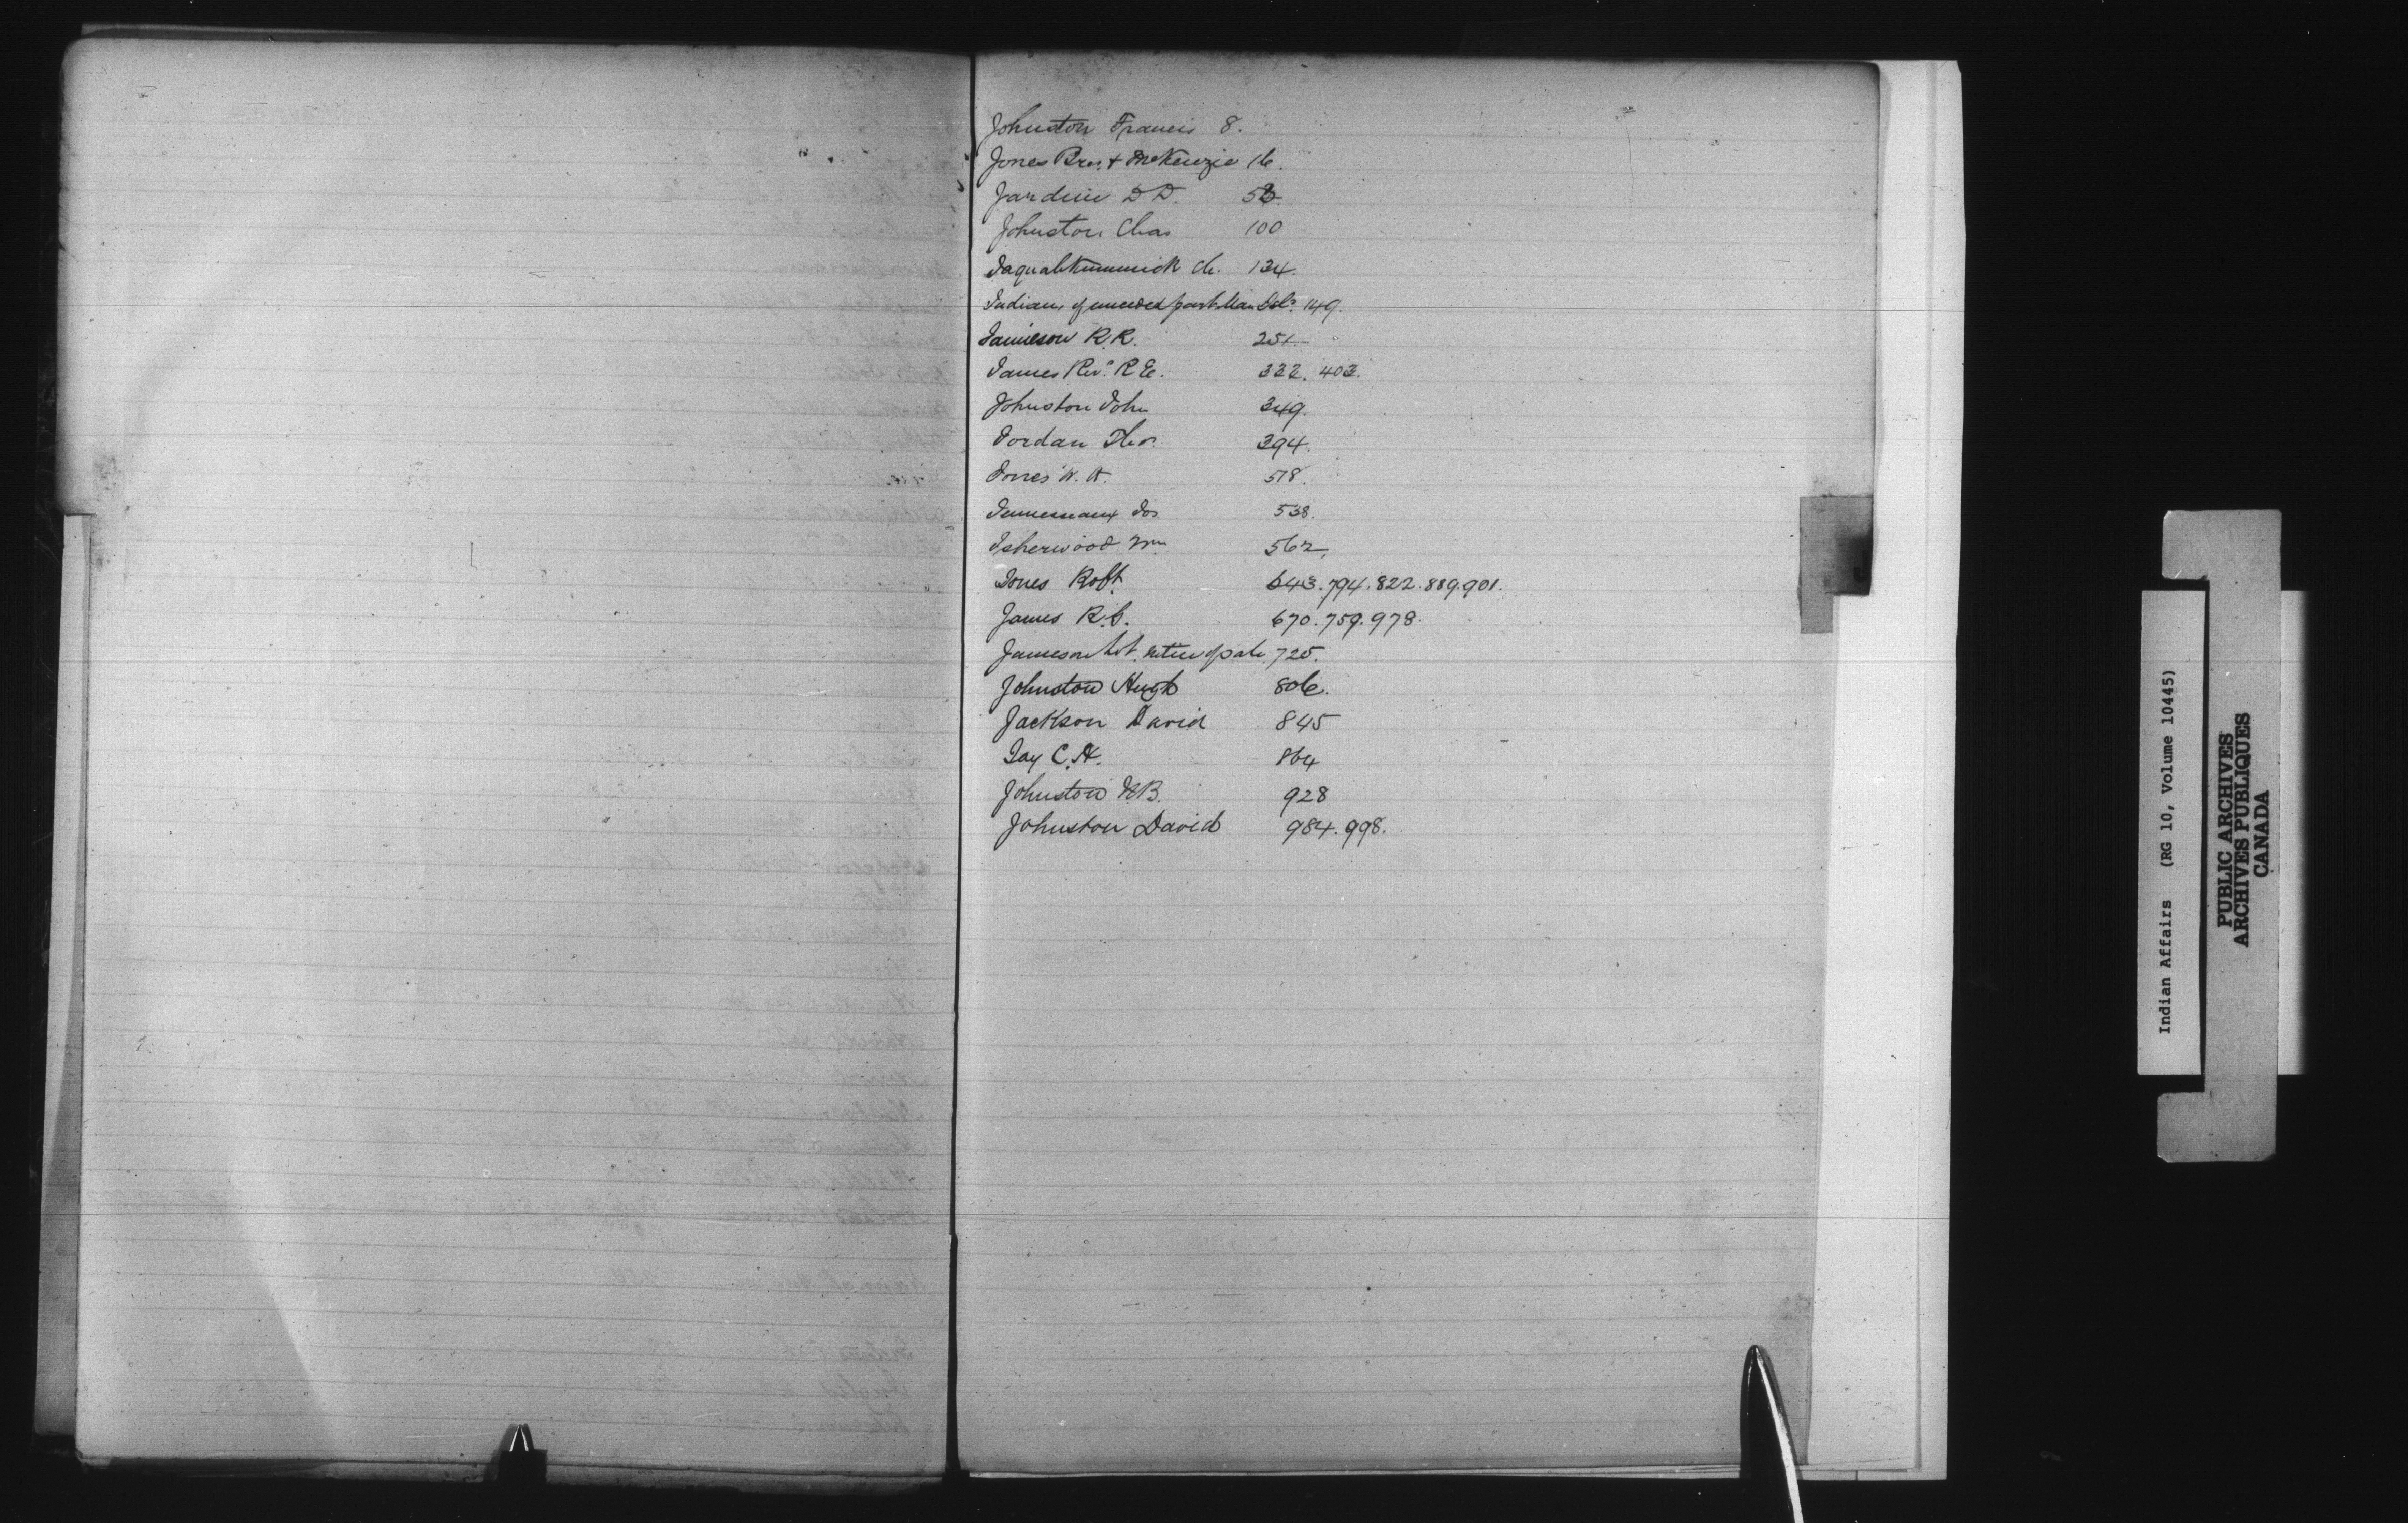 Johnston Francis 8.
Jones Bros. & McKenzie 16.
Jardine D D. 53
Johnston Chas 100
Jaquahkummick Ch. 134.
Indians of unceded part Man Isld. 149.
Jamieson R.R. 251.
James Revd. R E. 332. 403.
Johnston John 349.
Jordan Thos. 394.
Jones W. H. 518.
Jos. 538.
Isherwood Wm 562.
Jones Robt. 643. 794. 822. 889. 901.
James R.E. 670. 759. 978.
Jameson notice of pat. 725.
Johnston Hugh 806.
Jackson David 845
Jay C. H. 864
Johnston B. 928
Johnston David 984. 998.
Indian Affairs (RG 10, Volume 10445)
PUBLIC ARCHIVES
ARCHIVES PUBLIQUES
CANADA